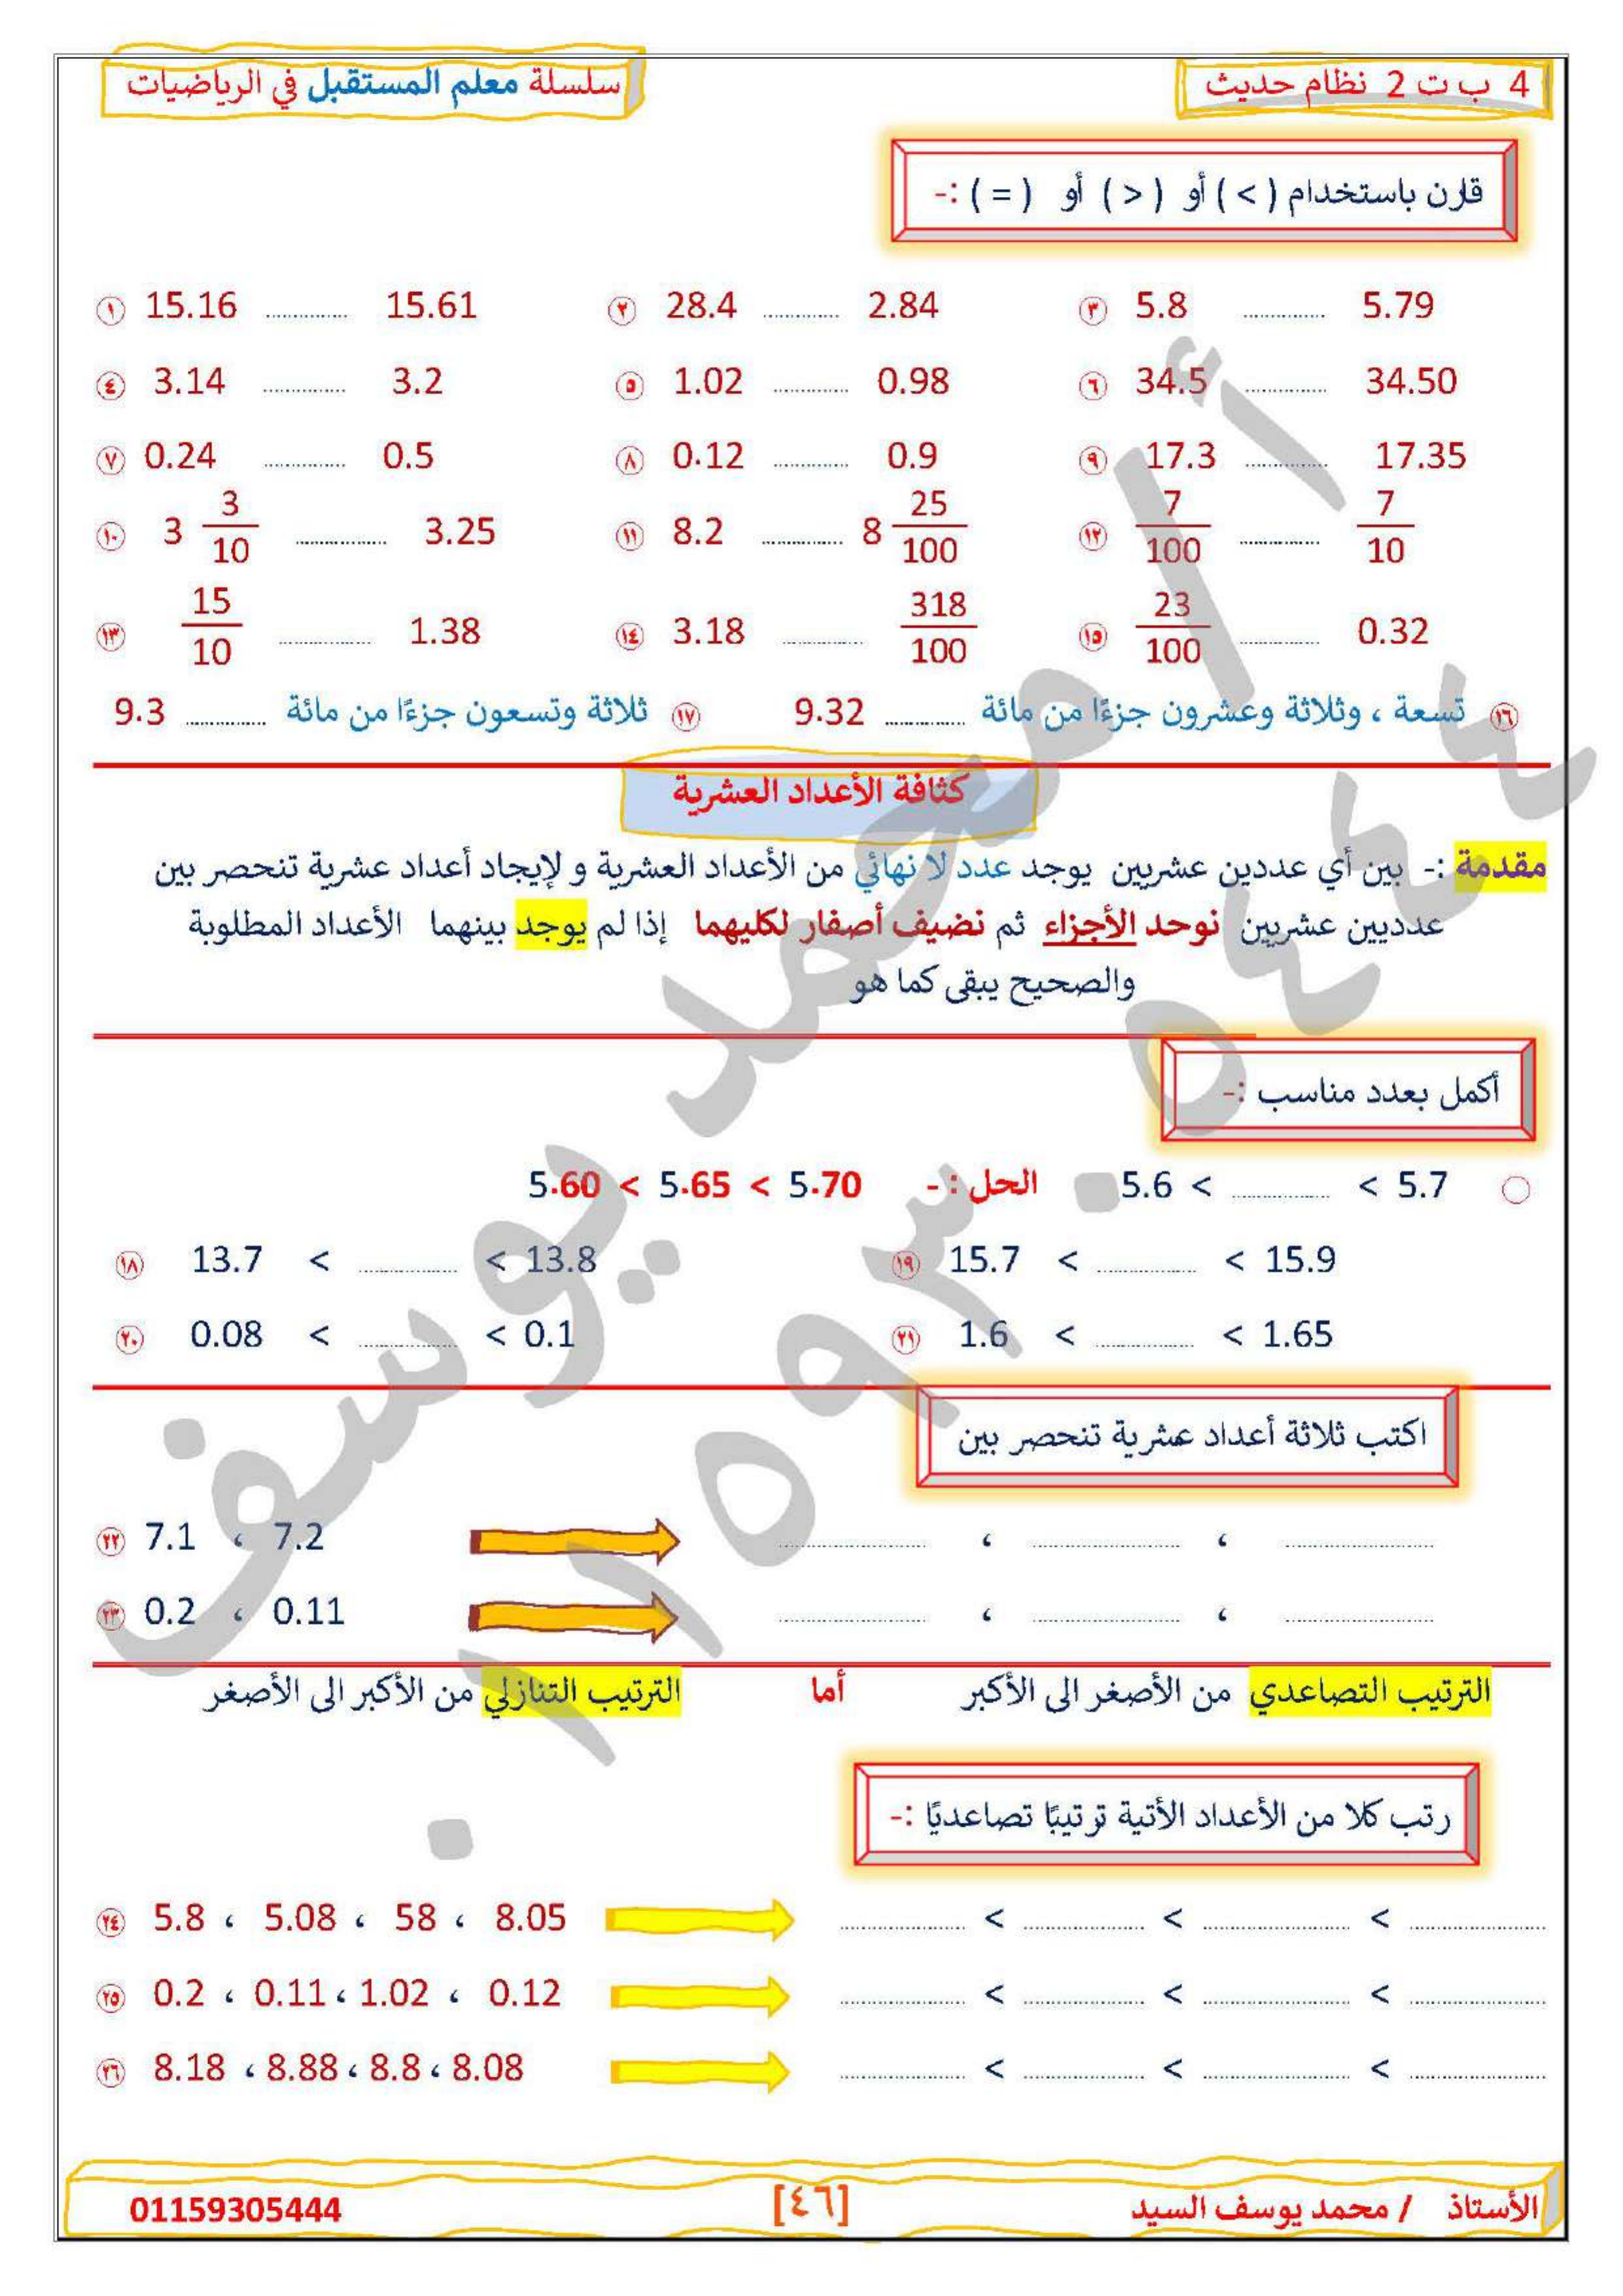 4 ب ت 2 نظام حديث
سلسلة معلم المستقبل في الرياضيات
قارن باستخدام ( > ) أو ( < ) أو ( = ) :-
١ 15.16 ............ 15.61 ٢ 28.4 ............ 2.84 ٣ 5.8 ............ 5.79
٤ 3.14 ............ 3.2 ٥ 1.02 ............ 0.98 ٦ 34.5 ............ 34.50
٧ 0.24 ............ 0.5 ٨ 0.12 ............ 0.9 ٩ 17.3 ............ 17.35
١٠ 3 3/10 ............ 3.25 ١١ 8.2 ............ 8 25/100 ١٢ 7/100 ............ 7/10
١٣ 15/10 ............ 1.38 ١٤ 3.18 ............ 318/100 ١٥ 23/100 ............ 0.32
١٦ تسعة ، وثلاثة وعشرون جزءًا من مائة ............ 9.32 ١٧ ثلاثة وتسعون جزءًا من مائة ............ 9.3
كثافة الأعداد العشرية
مقدمة :- بين أي عددين عشريين يوجد عدد لا نهائي من الأعداد العشرية و لإيجاد أعداد عشرية تنحصر بين
عدديين عشريين نوحد الأجزاء ثم نضيف أصفار لكليهما إذا لم يوجد بينهما الأعداد المطلوبة
والصحيح يبقى كما هو
أكمل بعدد مناسب :-
5.6 < ............ < 5.7 الحل : - 5.60 < 5.65 < 5.70
١٨ 13.7 < ............ < 13.8 ١٩ 15.7 < ............ < 15.9
٢٠ 0.08 < ............ < 0.1 ٢١ 1.6 < ............ < 1.65
اكتب ثلاثة أعداد عشرية تنحصر بين
٢٢ 7.1 ، 7.2 ............ ، ............ ، ............
٢٣ 0.2 ، 0.11 ............ ، ............ ، ............
الترتيب التصاعدي من الأصغر الى الأكبر أما الترتيب التنازلي من الأكبر الى الأصغر
رتب كلا من الأعداد الأتية ترتيبًا تصاعديًا :-
٢٤ 5.8 ، 5.08 ، 58 ، 8.05 ............ < ............ < ............ < ............
٢٥ 0.2 ، 0.11 ، 1.02 ، 0.12 ............ < ............ < ............ < ............
٢٦ 8.18 ، 8.88 ، 8.8 ، 8.08 ............ < ............ < ............ < ............
الأستاذ / محمد يوسف السيد [٤٦] 01159305444
أ / محمد يوسف
٠١١٥٩٣٠٥٤٤٤